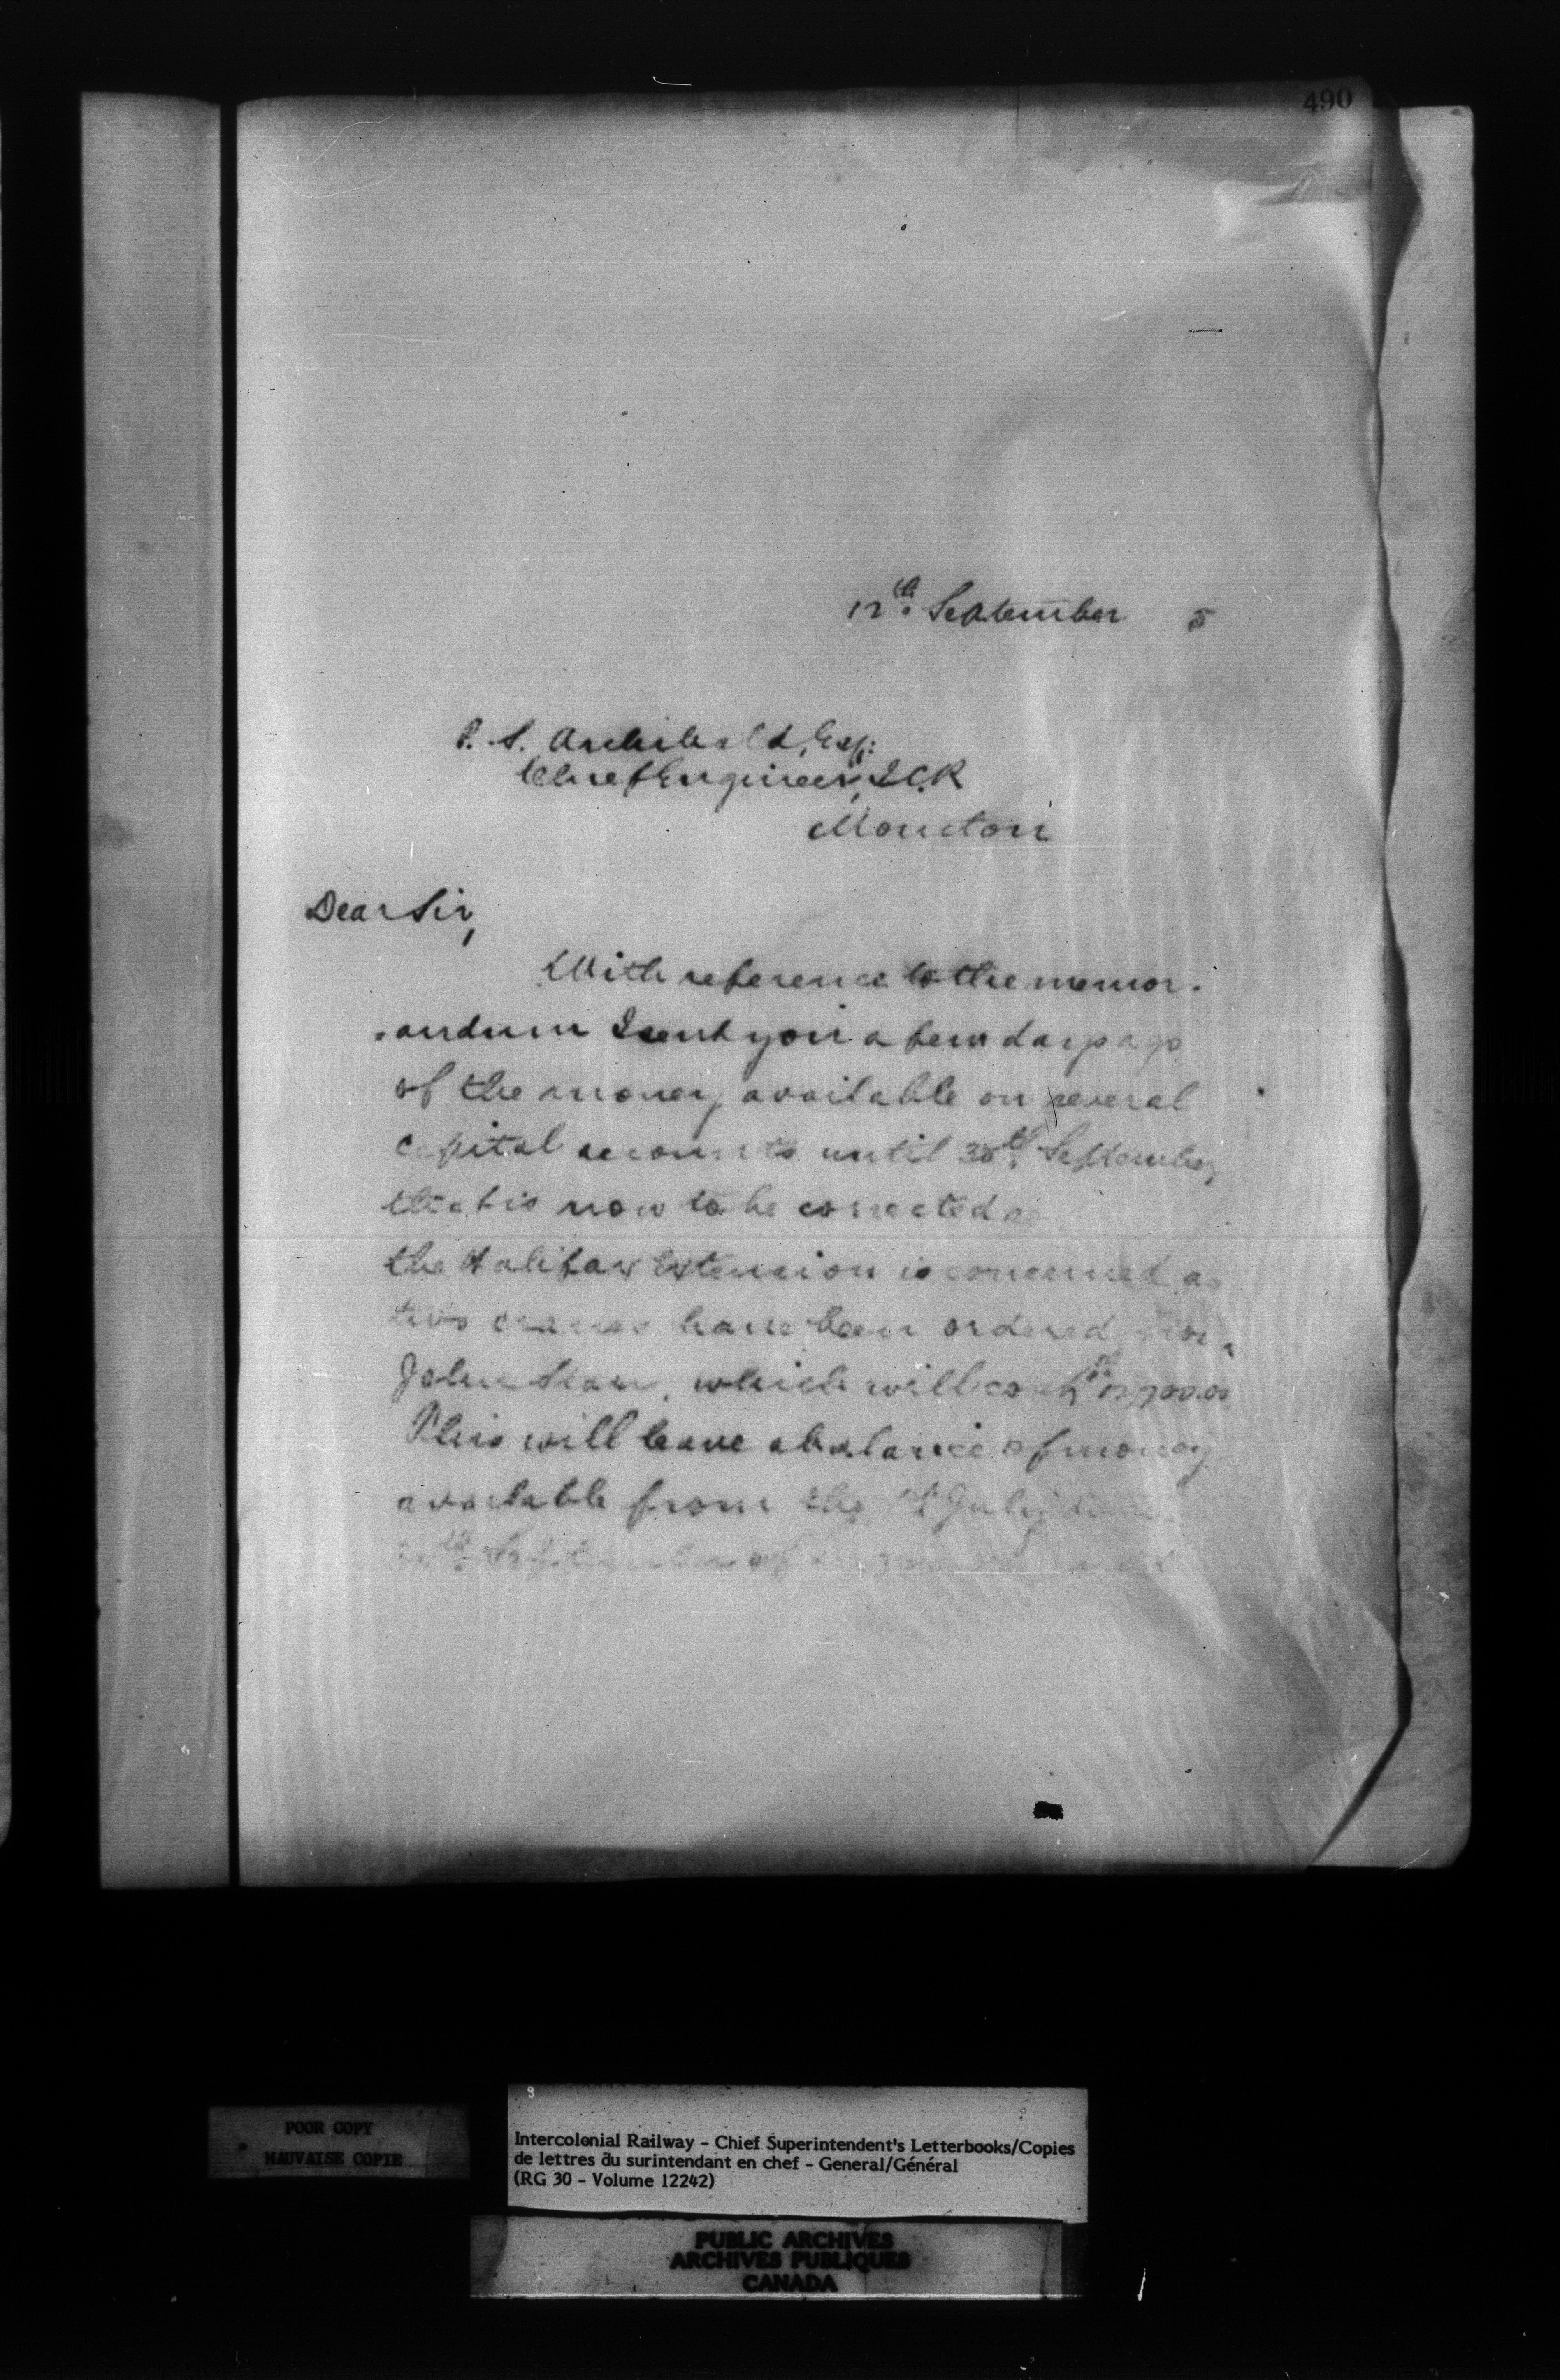 490
12th September 5
P. S. Archibald, Esq:
Chief Engineer, I.C.R
Moncton
Dear Sir,
With reference to the memor-
-andum I sent you a few days ago
of the money available on several
capital accounts until 30th September,
that is now to be corrected as
the Halifax Extension is concerned as
two cranes have been ordered from
John Starr, which will cost
This will leave a balance of money
available from the 1st July
September of
POOR COPY
MAUVAISE COPIE
9
Intercolonial Railway - Chief Superintendent's Letterbooks/Copies
de lettres du surintendant en chef - General/Général
(RG 30 - Volume 12242)
PUBLIC ARCHIVES
ARCHIVES PUBLIQUES
CANADA